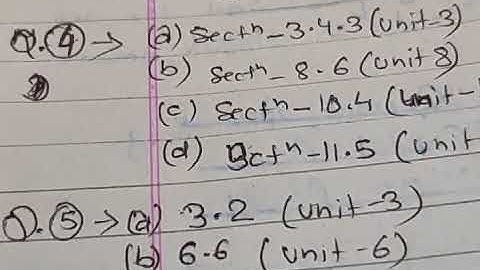 Q.④ → (a) Sectⁿ - 3.4.3 (unit-3)
(b) Sectⁿ - 8.6 (unit 8)
(c) Sectⁿ - 10.4 (unit-
(d) Sectⁿ - 11.5 (unit
Q.⑤ → (a) 3.2 (unit-3)
(b) 6.6 (unit-6)